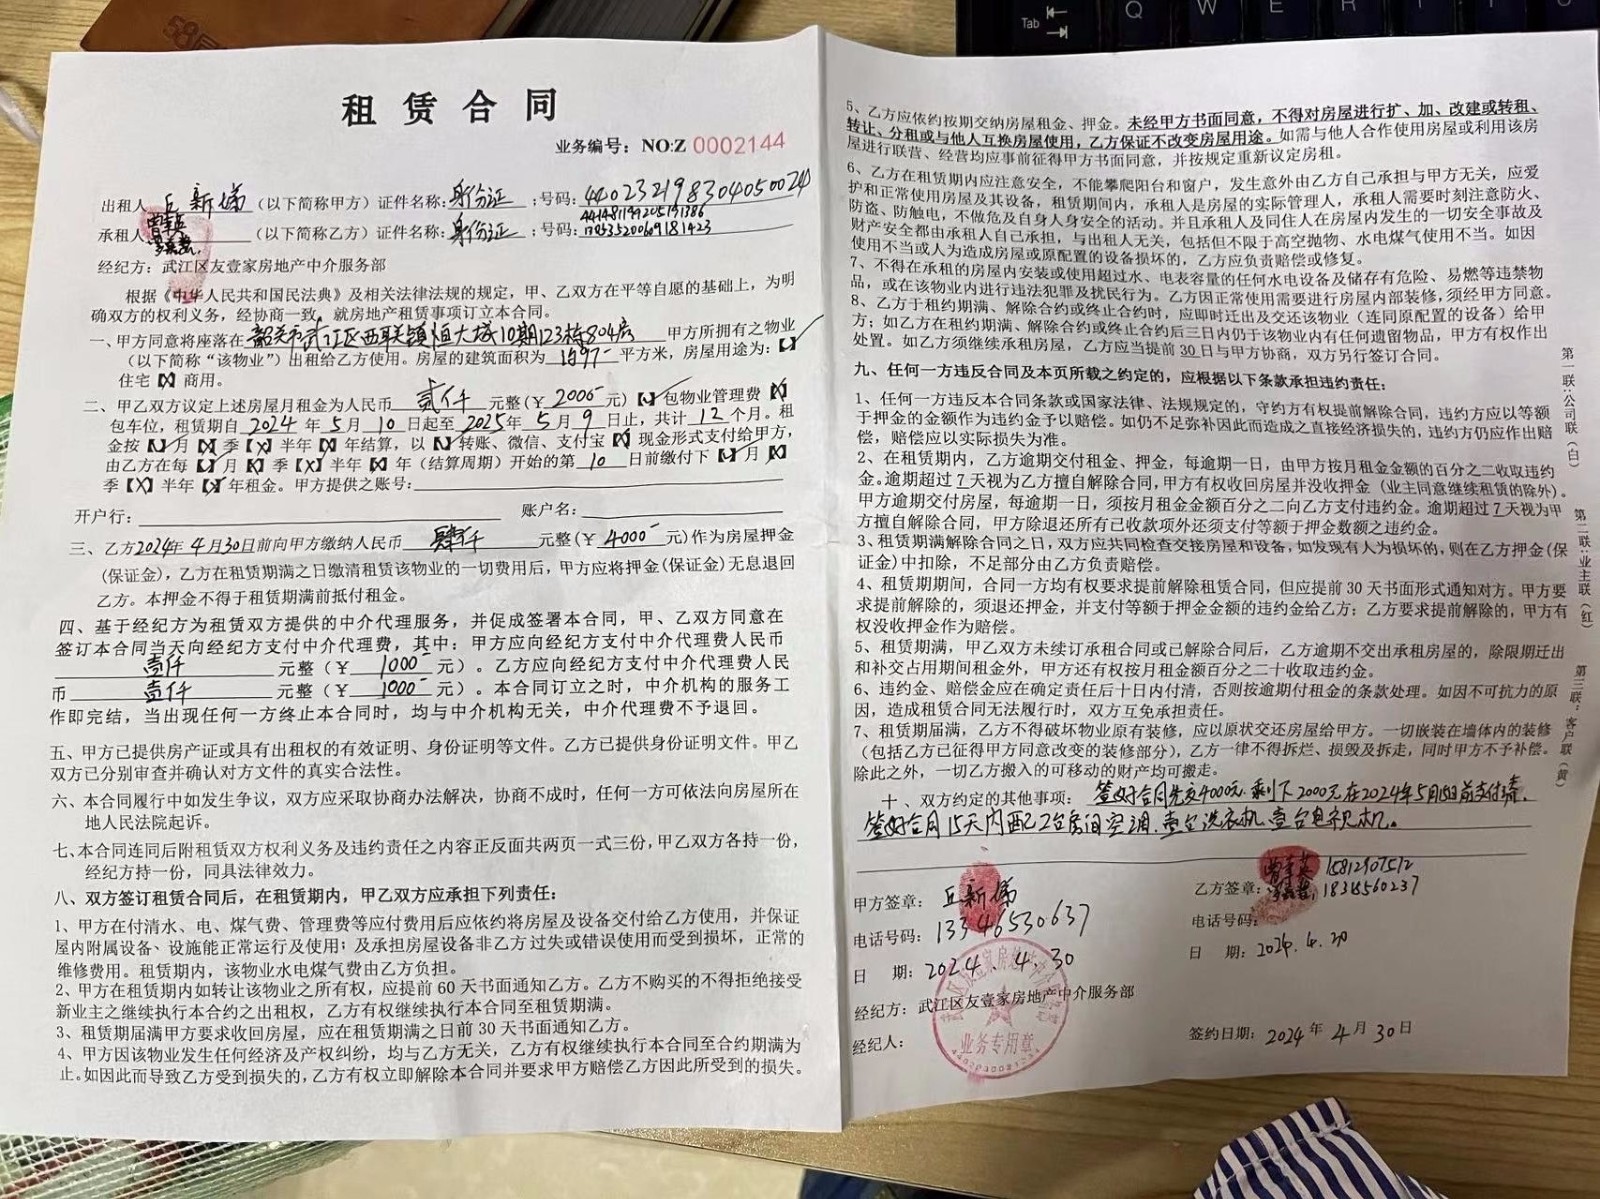 租赁合同
业务编号：NO:Z 0002144
出租人 丘新娣 （以下简称甲方）证件名称：身份证；号码：440232198304050024
承租人 （以下简称乙方）证件名称：身份证；号码：
经纪方：武江区友壹家房地产中介服务部
根据《中华人民共和国民法典》及相关法律法规的规定，甲、乙双方在平等自愿的基础上，为明
确双方的权利义务，经协商一致，就房地产租赁事项订立本合同。
一、甲方同意将座落在 韶关市武江区西联镇恒大城10期123栋804房 甲方所拥有之物业
（以下简称“该物业”）出租给乙方使用。房屋的建筑面积为 约97 平方米，房屋用途为：【✓】
住宅【X】商用。
二、甲乙双方议定上述房屋月租金为人民币 贰仟 元整（￥ 2000 元）【✓】包物业管理费【X】
包车位，租赁期自 2024 年 5 月 10 日起至 2025 年 5 月 9 日止，共计 12 个月。租
金按【✓】月【X】季【X】半年【X】年结算，以【✓】转账、微信、支付宝【X】现金形式支付给甲方，
由乙方在每【✓】月【X】季【X】半年【X】年（结算周期）开始的第 10 日前缴付下【✓】月【X】
季【X】半年【X】年租金。甲方提供之账号：
开户行： 账户名：
三、乙方2024年4月30日前向甲方缴纳人民币 肆仟 元整（￥ 4000 元）作为房屋押金
（保证金），乙方在租赁期满之日缴清租赁该物业的一切费用后，甲方应将押金（保证金）无息退回
乙方。本押金不得于租赁期满前抵付租金。
四、基于经纪方为租赁双方提供的中介代理服务，并促成签署本合同，甲、乙双方同意在
签订本合同当天向经纪方支付中介代理费，其中：甲方应向经纪方支付中介代理费人民币
壹仟 元整（￥ 1000 元）。乙方应向经纪方支付中介代理费人民
币 壹仟 元整（￥ 1000 元）。本合同订立之时，中介机构的服务工
作即完结，当出现任何一方终止本合同时，均与中介机构无关，中介代理费不予退回。
五、甲方已提供房产证或具有出租权的有效证明、身份证明等文件。乙方已提供身份证明文件。甲乙
双方已分别审查并确认对方文件的真实合法性。
六、本合同履行中如发生争议，双方应采取协商办法解决，协商不成时，任何一方可依法向房屋所在
地人民法院起诉。
七、本合同连同后附租赁双方权利义务及违约责任之内容正反面共两页一式三份，甲乙双方各持一份，
经纪方持一份，同具法律效力。
八、双方签订租赁合同后，在租赁期内，甲乙双方应承担下列责任：
1、甲方在付清水、电、煤气费、管理费等应付费用后应依约将房屋及设备交付给乙方使用，并保证
屋内附属设备、设施能正常运行及使用；及承担房屋设备非乙方过失或错误使用而受到损坏，正常的
维修费用。租赁期内，该物业水电煤气费由乙方负担。
2、甲方在租赁期内如转让该物业之所有权，应提前 60 天书面通知乙方。乙方不购买的不得拒绝接受
新业主之继续执行本合约之出租权，乙方有权继续执行本合同至租赁期满。
3、租赁期届满甲方要求收回房屋，应在租赁期满之日前 30 天书面通知乙方。
4、甲方因该物业发生任何经济及产权纠纷，均与乙方无关，乙方有权继续执行本合同至合约期满为
止。如因此而导致乙方受到损失的，乙方有权立即解除本合同并要求甲方赔偿乙方因此所受到的损失。
5、乙方应依约按期交纳房屋租金、押金。未经甲方书面同意，不得对房屋进行扩、加、改建或转租、
转让、分租或与他人互换房屋使用，乙方保证不改变房屋用途。如需与他人合作使用房屋或利用该房
屋进行联营、经营均应事前征得甲方书面同意，并按规定重新议定房租。
6、乙方在租赁期内应注意安全，不能攀爬阳台和窗户，发生意外由乙方自己承担与甲方无关，应爱
护和正常使用房屋及其设备，租赁期间内，承租人是房屋的实际管理人，承租人需要时刻注意防火、
防盗、防触电，不做危及自身人身安全的活动。并且承租人及同住人在房屋内发生的一切安全事故及
财产安全都由承租人自己承担，与出租人无关，包括但不限于高空抛物、水电煤气使用不当。如因
使用不当或人为造成房屋或原配置的设备损坏的，乙方应负责赔偿或修复。
7、不得在承租的房屋内安装或使用超过水、电表容量的任何水电设备及储存有危险、易燃等违禁物
品，或在该物业内进行违法犯罪及扰民行为。乙方因正常使用需要进行房屋内部装修，须经甲方同意。
8、乙方于租约期满、解除合约或终止合约时，应即时迁出及交还该物业（连同原配置的设备）给甲
方；如乙方在租约期满、解除合约或终止合约后三日内仍于该物业内有任何遗留物品，甲方有权作出
处置。如乙方须继续承租房屋，乙方应当提前 30 日与甲方协商，双方另行签订合同。
九、任何一方违反合同及本页所载之约定的，应根据以下条款承担违约责任：
1、任何一方违反本合同条款或国家法律、法规规定的，守约方有权提前解除合同，违约方应以等额
于押金的金额作为违约金予以赔偿。如仍不足弥补因此而造成之直接经济损失的，违约方仍应作出赔
偿，赔偿应以实际损失为准。
2、在租赁期内，乙方逾期交付租金、押金，每逾期一日，由甲方按月租金金额的百分之二收取违约
金。逾期超过 7 天视为乙方擅自解除合同，甲方有权收回房屋并没收押金（业主同意继续租赁的除外）。
甲方逾期交付房屋，每逾期一日，须按月租金金额百分之二向乙方支付违约金。逾期超过 7 天视为甲
方擅自解除合同，甲方除退还所有已收款项外还须支付等额于押金数额之违约金。
3、租赁期满解除合同之日，双方应共同检查交接房屋和设备，如发现有人为损坏的，则在乙方押金（保
证金）中扣除，不足部分由乙方负责赔偿。
4、租赁期期间，合同一方均有权要求提前解除租赁合同，但应提前 30 天书面形式通知对方。甲方要
求提前解除的，须退还押金，并支付等额于押金金额的违约金给乙方；乙方要求提前解除的，甲方有
权没收押金作为赔偿。
5、租赁期满，甲乙双方未续订承租合同或已解除合同后，乙方逾期不交出承租房屋的，除限期迁出
和补交占用期间租金外，甲方还有权按月租金额百分之二十收取违约金。
6、违约金、赔偿金应在确定责任后十日内付清，否则按逾期付租金的条款处理。如因不可抗力的原
因，造成租赁合同无法履行时，双方互免承担责任。
7、租赁期届满，乙方不得破坏物业原有装修，应以原状交还房屋给甲方。一切嵌装在墙体内的装修
（包括乙方已征得甲方同意改变的装修部分），乙方一律不得拆烂、损毁及拆走，同时甲方不予补偿。
除此之外，一切乙方搬入的可移动的财产均可搬走。
十、双方约定的其他事项：签好合同先交4000元，剩下2000元在2024年5月15日前支付清，
签好合同15天内配2台房间空调，壹台洗衣机，壹台电视机。
甲方签章：丘新娣
电话号码：13346530637
日 期：2024.4.30
经纪方：武江区友壹家房地产中介服务部
经纪人：
业务专用章
乙方签章： 15812907512
18318560237
电话号码：
日 期：2024.4.30
签约日期：2024年4月30日
第一联：公司联（白）
第二联：业主联（红）
第三联：客户联（黄）
Tab
Q W E R T